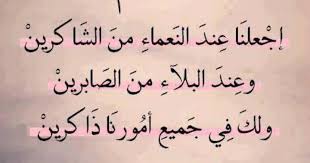 إجْعلنَا عِندَ النَعماءِ منَ الشَاكرينْ
وعِندَ البلآءِ منَ الصَابرينْ
ولكَ فِي جَميعِ أمُورنَا ذَاكرينْ